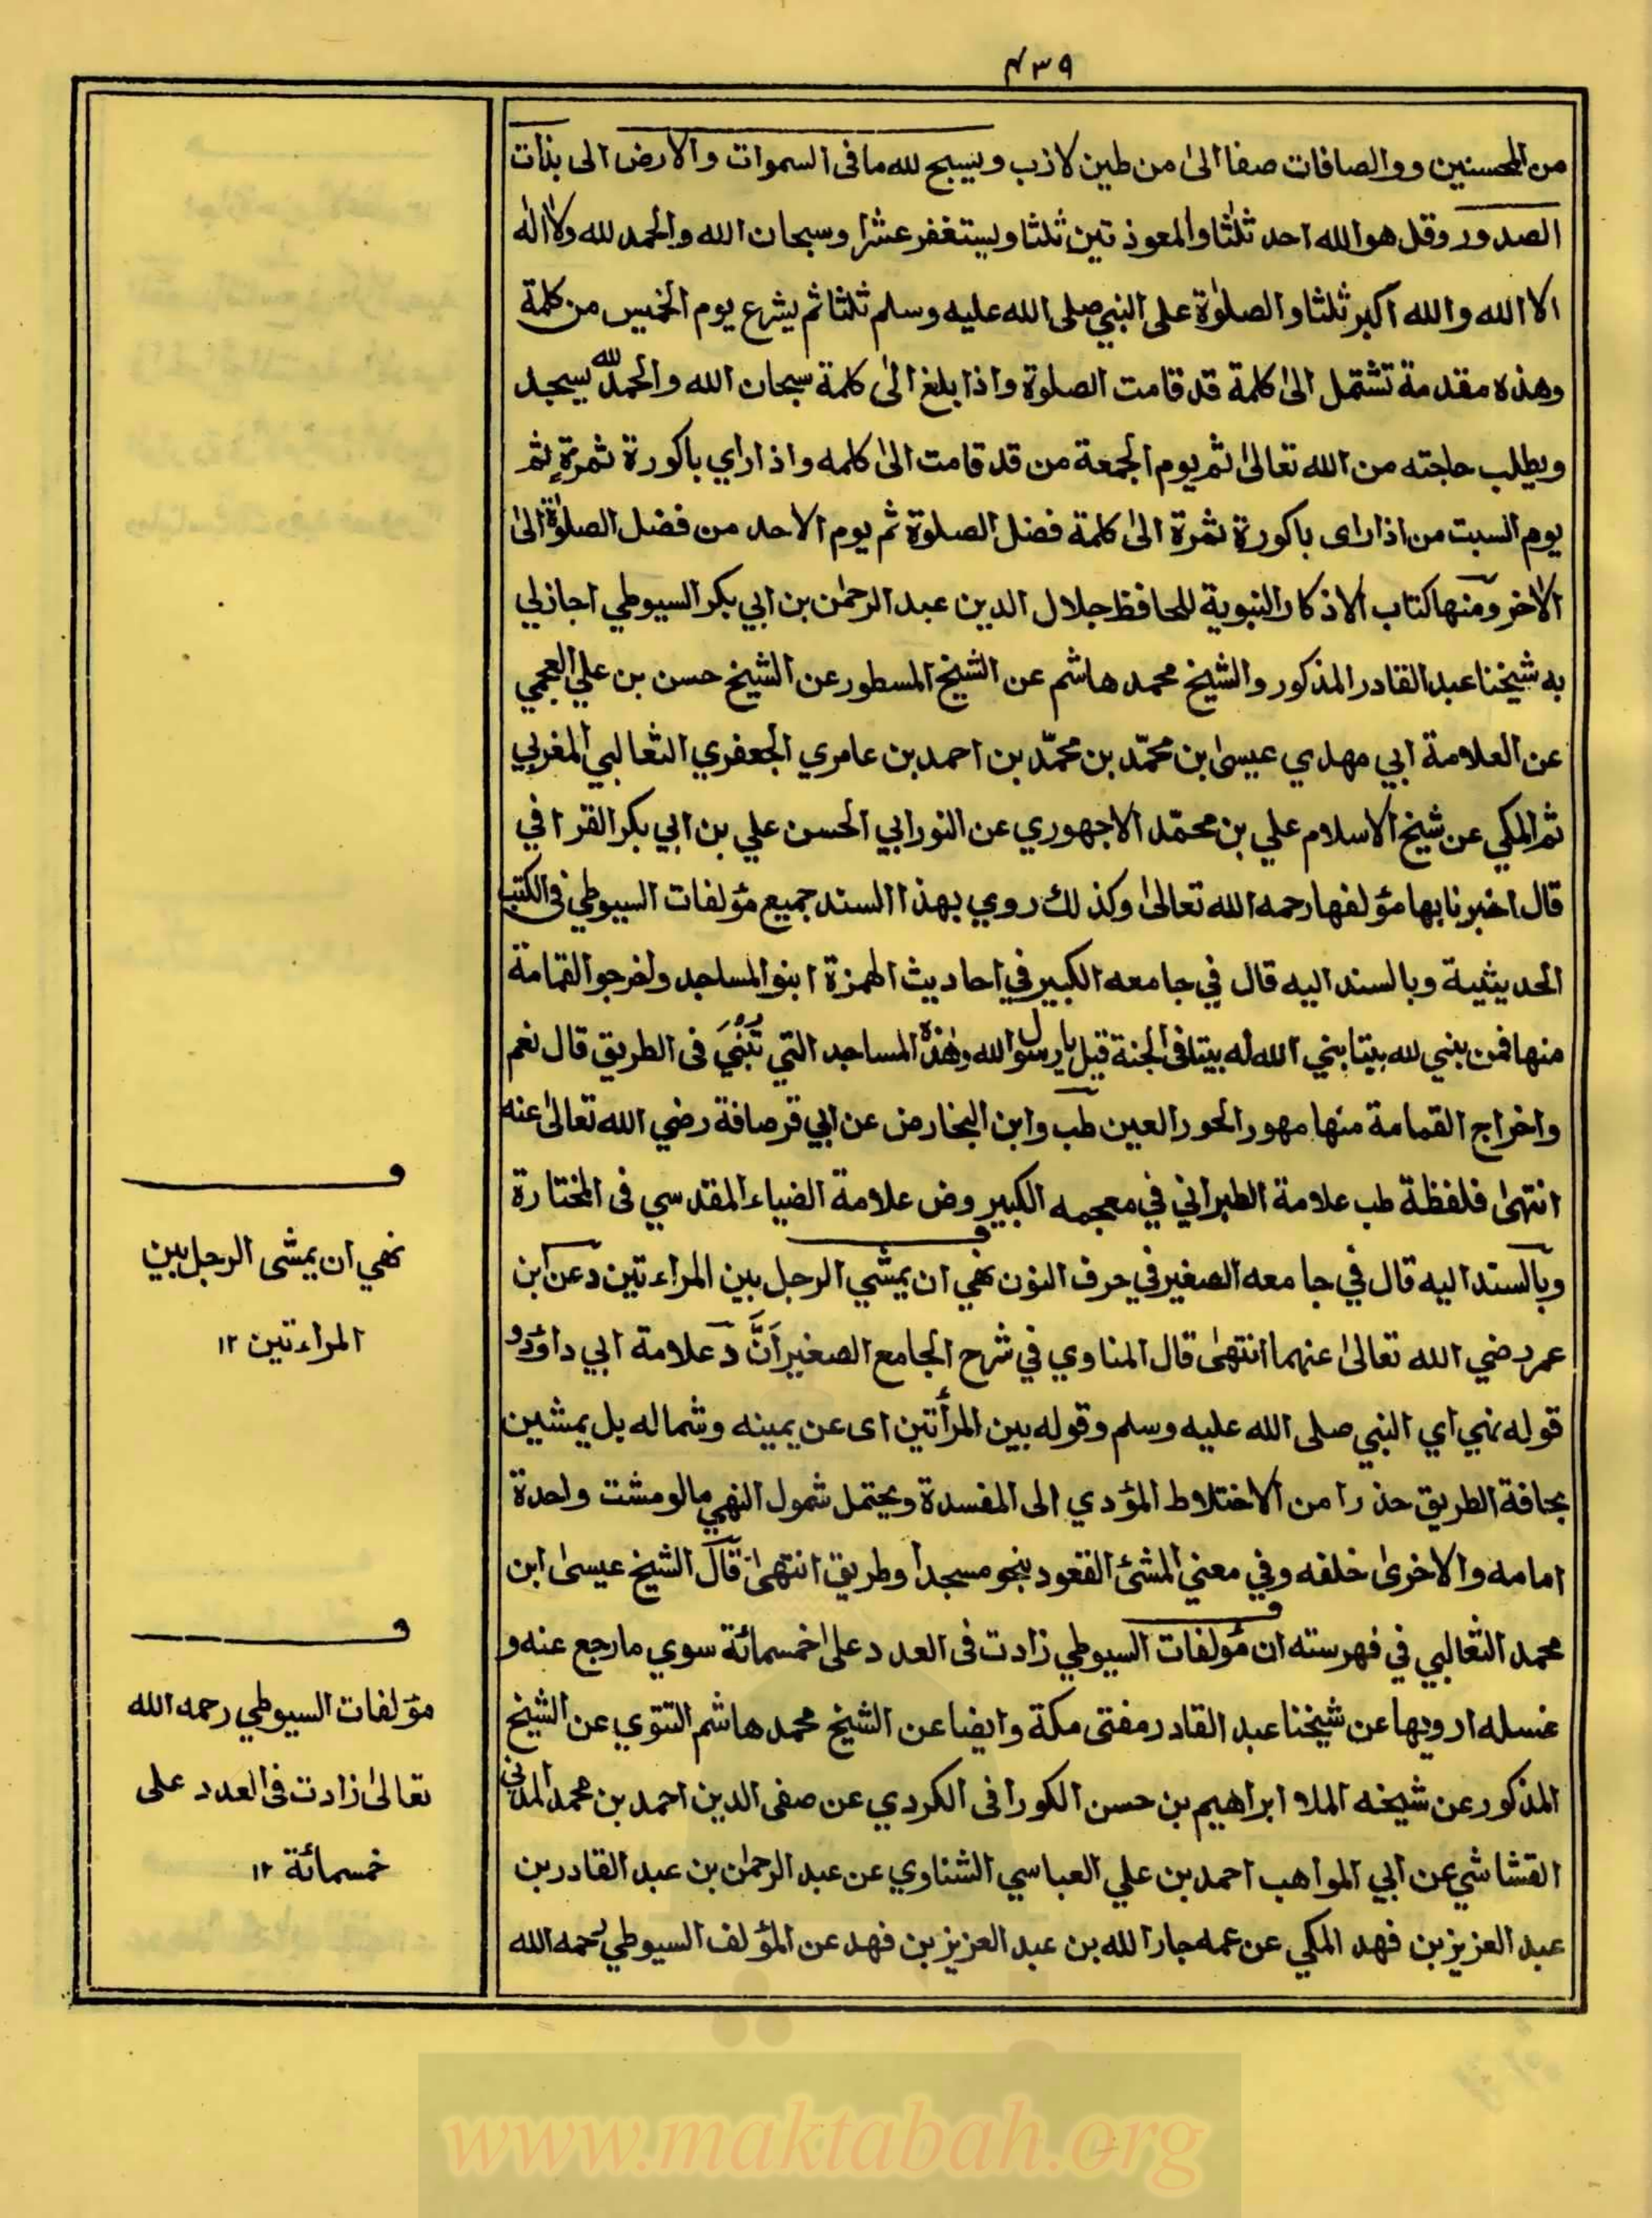 ٤٣٩
من المحسنين و والصافات صفا الىٰ من طين لاذب و يسبح لله ما فى السموات والارض الى بذات
الصدور وقل هوالله احد ثلثا والمعوذتين ثلثا ويستغفر عشرا وسبحان الله والحمد لله ولا اله
الا الله والله اكبر ثلثا والصلوٰة على النبي صلى الله عليه وسلم ثلثا ثم يشرع يوم الخميس من كلمة
وهذه مقدمة تشتمل الىٰ كلمة قد قامت الصلوة واذا بلغ الىٰ كلمة سبحان الله والحمد لله يسجد
ويطلب حاجته من الله تعالىٰ ثم يوم الجمعة من قد قامت الىٰ كلمه واذا راي باكورة ثمرةٍ ثم
يوم السبت من اذا راى باكورة ثمرة الىٰ كلمة فضل الصلوة ثم يوم الاحد من فضل الصلوٰة الىٰ
الاخر ومنها كتاب الاذكار النبوية للحافظ جلال الدين عبد الرحمٰن بن ابي بكر السيوطي اجازلي
به شيخنا عبد القادر المذكور والشيخ محمد هاشم عن الشيخ المسطور عن الشيخ حسن بن علي العجمي
عن العلامة ابي مهدي عيسىٰ بن محمّد بن محمّد بن احمد بن عامري الجعفري الثعالبي المغربي
ثم المكي عن شيخ الاسلام علي بن محمّد الاجهوري عن النور ابي الحسن علي بن ابي بكر القرافي
قال اخبرنا بها مؤلفها رحمه الله تعالىٰ وكذلك روي بهذا السند جميع مؤلفات السيوطي فى الكتب
الحديثية وبالسند اليه قال في جامعه الكبير في احاديث الهمزة ابنوا المساجد واخرجوا القمامة
منها فمن بني لله بيتا بني الله له بيتا فى الجنة قيل يا رسول الله وهٰذه المساجد التي تُبْنَي فى الطريق قال نعم
واخراج القمامة منها مهور الحور العين طب وابن النجار ض عن ابي قرصافة رضي الله تعالىٰ عنه
انتهىٰ فلفظة طب علامة الطبراني في معجمه الكبير وض علامة الضياء المقدسي فى المختارة
وبالسند اليه قال في جامعه الصغير في حرف النون نهي ان يمشي الرجل بين المراءتين د عن ابن
عمر رضي الله تعالىٰ عنهما انتهىٰ قال المناوي في شرح الجامع الصغير اَنَّ د علامة ابي داؤد و
قوله نهي اي النبي صلى الله عليه وسلم وقوله بين المرأتين اى عن يمينه وشماله بل يمشين
بحافة الطريق حذرا من الاختلاط المؤدي الى المفسدة ويحتمل شمول النهي مالو مشت واحدة
امامه والاخرىٰ خلفه وفي معني المشئ القعود بنحو مسجد او طريق انتهىٰ قال الشيخ عيسىٰ ابن
محمد الثعالبي في فهرسته ان مؤلفات السيوطي زادت فى العدد على خمسمائة سوي ما رجع عنه و
غسله ارويها عن شيخنا عبد القادر مفتى مكة وايضا عن الشيخ محمد هاشم التتوي عن الشيخ
المذكور عن شيخه الملا ابراهيم بن حسن الكورافى الكردي عن صفى الدين احمد بن محمد المدني
القشاشي عن ابي المواهب احمد بن علي العباسي الشناوي عن عبد الرحمٰن بن عبد القادر بن
عبد العزيز بن فهد المكي عن عمه جار الله بن عبد العزيز بن فهد عن المؤلف السيوطي رحمه الله
نهي ان يمشى الرجل بين
المراءتين ١٢
مؤلفات السيوطي رحمه الله
تعالىٰ زادت فى العدد على
خمسمائة ١٢
www.maktabah.org